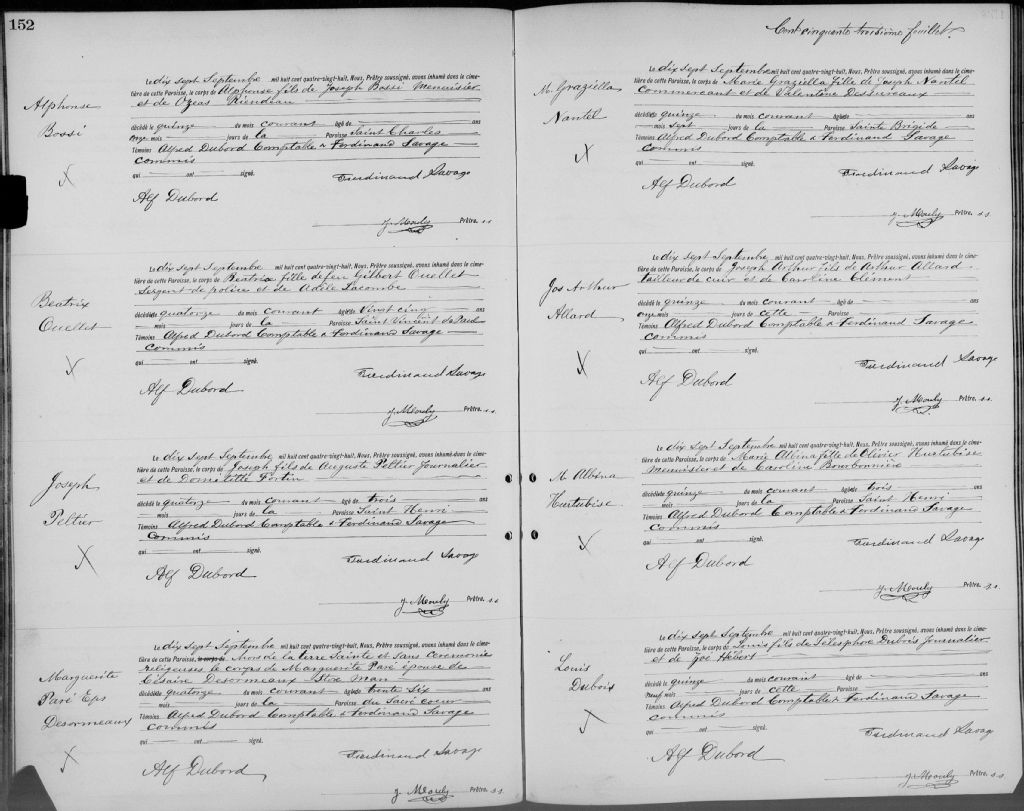 152
Alphonse
Bossé
Le dix sept Septembre mil huit cent quatre-vingt-huit. Nous, Prêtre soussigné, avons inhumé dans le cime-
tière de cette Paroisse, le corps de Alphonse fils de Joseph Bossé Menuisier
et de Ozéas Riendeau
décédé le quinze du mois courant âgé de ans
onze mois jours de la Paroisse Saint Charles
Témoins Alfred Dubord Comptable & Ferdinand Savage
commis
qui ont signé.
Ferdinand Savage
Alf Dubord
Prêtre. s.s.
Beatrix
Ouellet
Le dix sept Septembre mil huit cent quatre-vingt-huit. Nous, Prêtre soussigné, avons inhumé dans le cime-
tière de cette Paroisse, le corps de Beatrix fille de feu Gilbert Ouellet
Sergent de police et de Adèle Lacombe
décédée quatorze du mois courant âgée de Vingt cinq ans
mois jours de la Paroisse Saint Vincent de Paul
Témoins Alfred Dubord Comptable & Ferdinand Savage
commis
qui ont signé.
Ferdinand Savage
Alf Dubord
Prêtre. s.s.
Joseph
Peltier
Le dix sept Septembre mil huit cent quatre-vingt-huit. Nous, Prêtre soussigné, avons inhumé dans le cime-
tière de cette Paroisse, le corps de Joseph fils de Auguste Peltier Journalier
et de Domitille Fortin
décédé le quatorze du mois courant âgé de trois ans
mois jours de la Paroisse Saint Henri
Témoins Alfred Dubord Comptable & Ferdinand Savage
Commis
qui ont signé.
Ferdinand Savage
Alf Dubord
Prêtre. s.s.
Marguerite
Paré Eps
Desormeaux
Le dix sept Septembre mil huit cent quatre-vingt-huit. Nous, Prêtre soussigné, avons inhumé dans le cime-
tière de cette Paroisse, le corps de hors de la terre Sainte et Sans Ceremonie
religieuses le corps de Marguerite Paré épouse de
Césaire Desormeaux Stoe man
décédée quatorze du mois courant âgée de trente six ans
mois jours de la Paroisse du Sacré coeur
Témoins Alfred Dubord Comptable & Ferdinand Savage
commis
qui ont signé.
Ferdinand Savage
Alf Dubord
Prêtre. s.s.
Cent cinquante troisième feuillet.
M. Graziella
Nantel
Le dix sept Septembre mil huit cent quatre-vingt-huit. Nous, Prêtre soussigné, avons inhumé dans le cime-
tière de cette Paroisse, le corps de Marie Graziella fille de Joseph Nantel
Commercant et de Valentine
décédée quinze du mois courant âgé de ans
mois Sept jours de la Paroisse Sainte Brigide
Témoins Alfred Dubord Comptable & Ferdinand Savage
commis
qui ont signé.
Ferdinand Savage
Alf Dubord
Prêtre. s.s.
Jos Arthur
Allard
Le dix sept Septembre mil huit cent quatre-vingt-huit. Nous, Prêtre soussigné, avons inhumé dans le cime-
tière de cette Paroisse, le corps de Joseph Arthur fils de Arthur Allard
tailleur de cuir et de Caroline Clément
décédé le quinze du mois courant âgé de ans
onze mois jours de cette Paroisse
Témoins Alfred Dubord Comptable & Ferdinand Savage
commis
qui ont signé.
Ferdinand Savage
Alf Dubord
Prêtre. s.s.
M Albina
Hurtubise
Le dix sept Septembre mil huit cent quatre-vingt-huit. Nous, Prêtre soussigné, avons inhumé dans le cime-
tière de cette Paroisse, le corps de Marie Albina fille de Olivier Hurtubise
Menuisier et de Caroline Bourbonnière
décédée quinze du mois courant âgée de trois ans
mois jours de la Paroisse Saint Henri
Témoins Alfred Dubord Comptable & Ferdinand Savage
commis
qui ont signé.
Ferdinand Savage
Alf Dubord
Prêtre. s.s.
Louis
Dubois
Le dix sept Septembre mil huit cent quatre-vingt-huit. Nous, Prêtre soussigné, avons inhumé dans le cime-
tière de cette Paroisse, le corps de Louis fils de Télésphore Dubois Journalier
et de Zoé Hébert
décédé le quinze du mois courant âgé de ans
neuf mois jours de cette Paroisse
Témoins Alfred Dubord Comptable & Ferdinand Savage
commis
qui ont signé.
Ferdinand Savage
Alf Dubord
Prêtre. s.s.